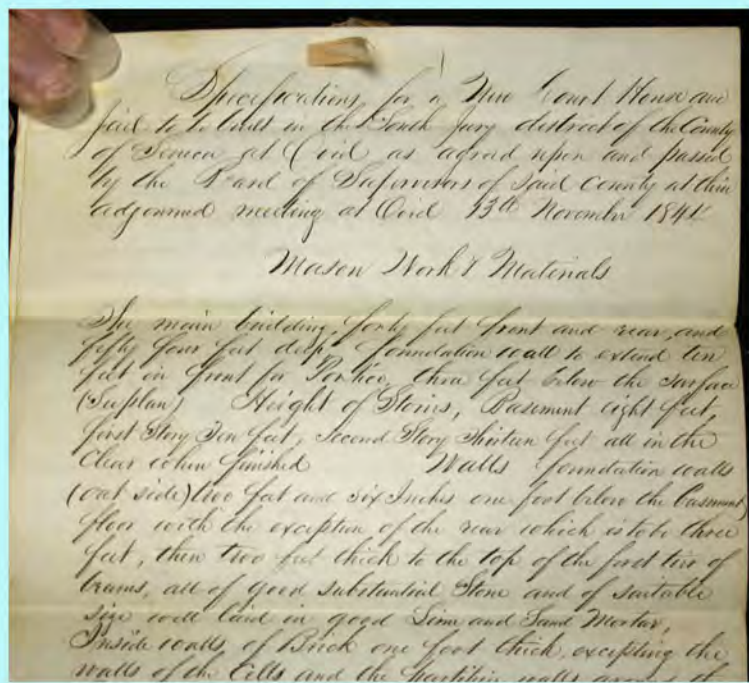 Specifications for a New Court House and
jail to be built in the South Jury district of the County
of Seneca at Ovid as agreed upon and passed
by the Board of Supervisors of said County at their
adjourned meeting at Ovid 13th November 1844
Mason Work & Materials
The main building, forty feet front and rear, and
fifty four feet deep, foundation wall to extend ten
feet in front for Portico, three feet below the surface
(See plan) Height of Stories, Basement eight feet,
first Story Ten feet, second Story Thirteen feet all in the
Clear when finished Walls foundation walls
(out side) two feet and six Inches one foot below the basement
floor with the exception of the rear which is to be three
feet, then two feet thick to the top of the first tier of
beams, all of good substantial Stone and of suitable
size well laid in good Lime and Sand Mortar,
Inside walls, of Brick one foot thick, excepting the
walls of the Cells and the partition walls